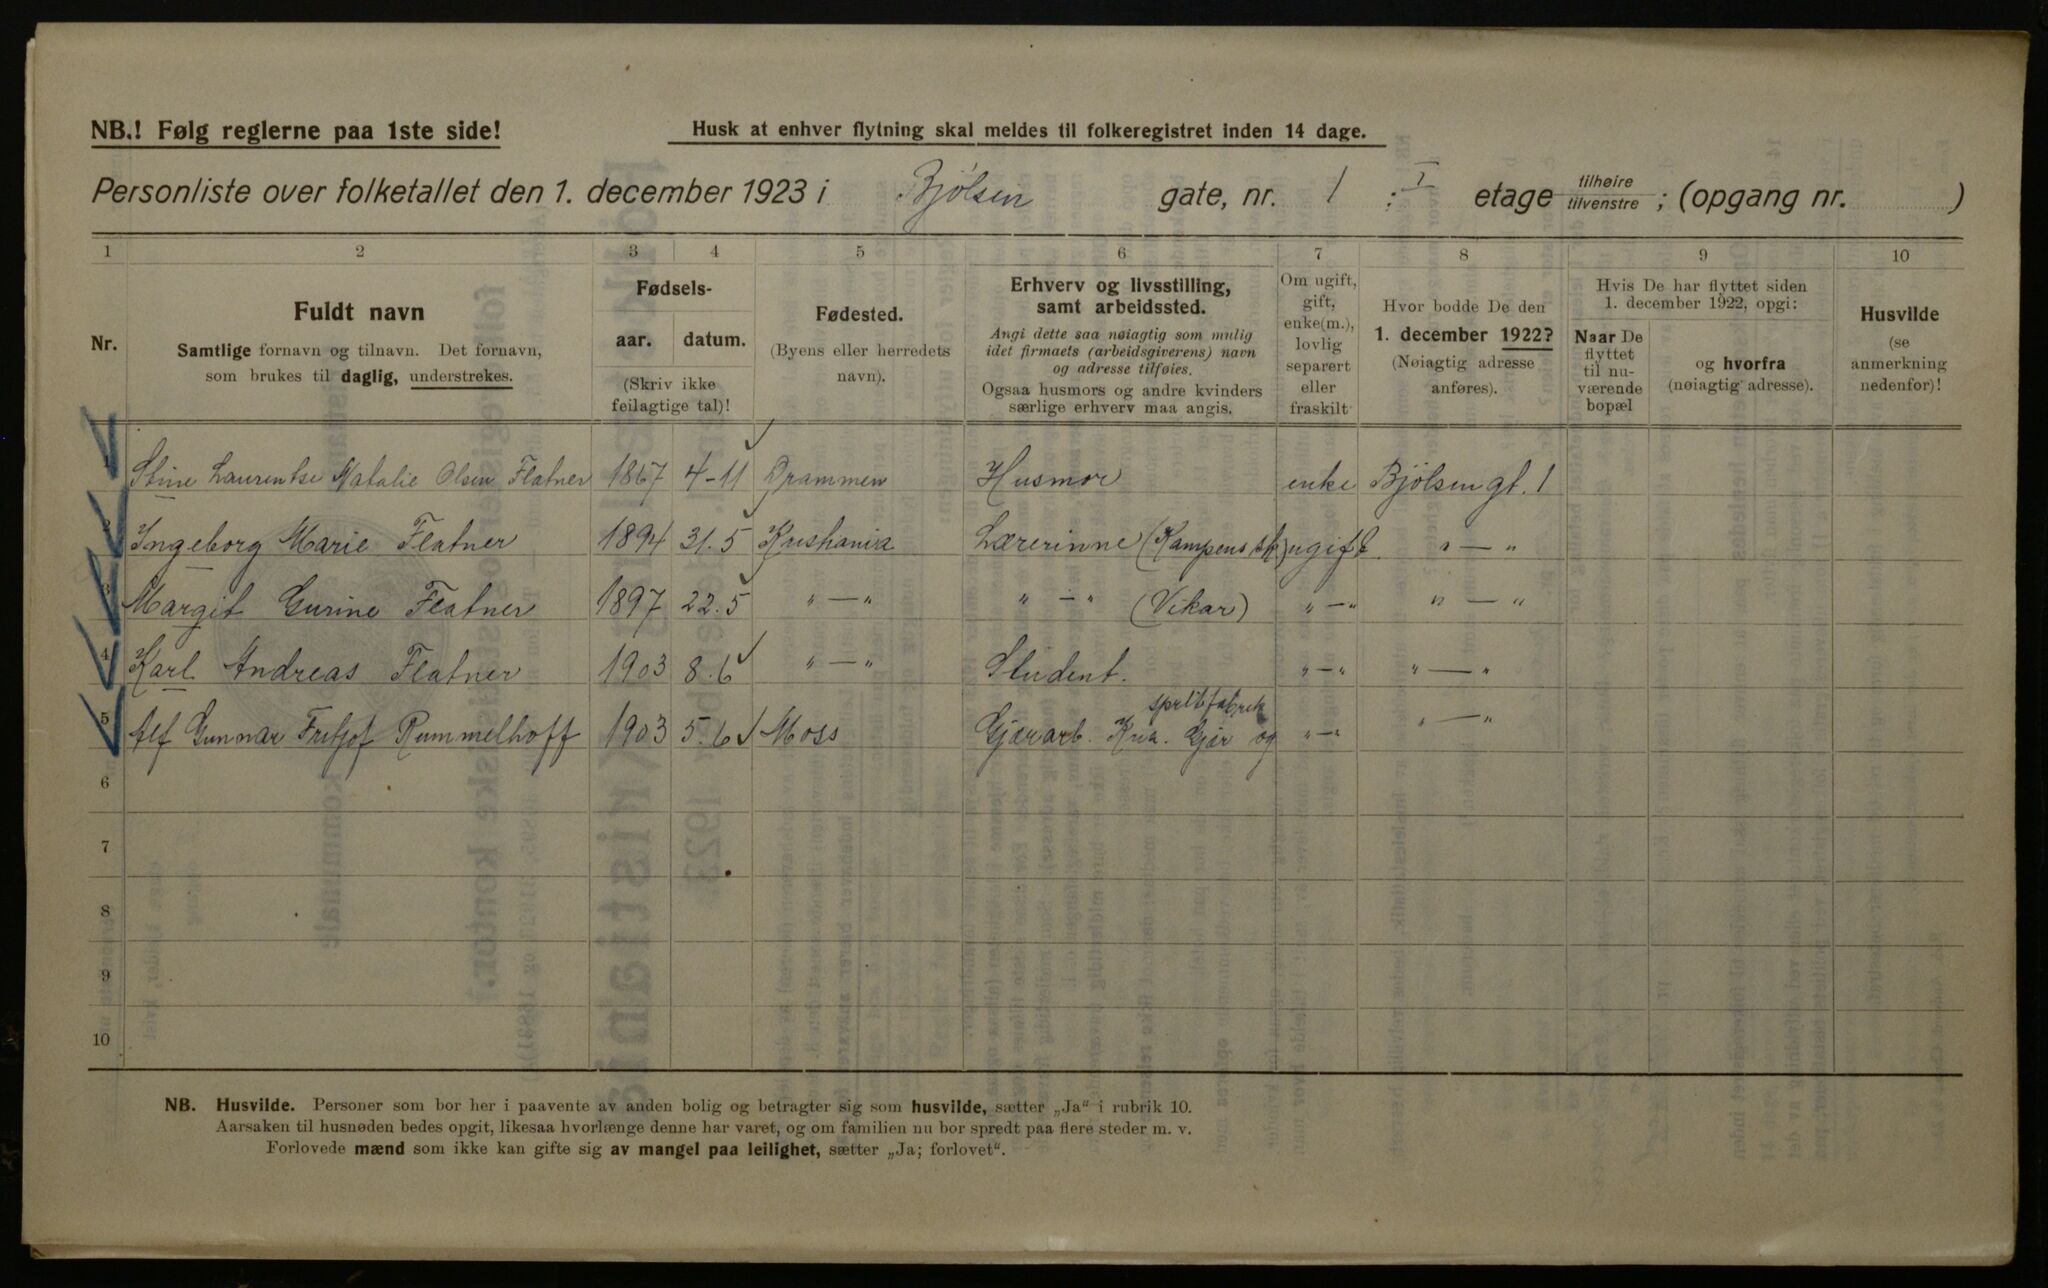 NB.! Følg reglerne paa 1ste side!
Husk at enhver flytning skal meldes til folkeregistret inden 14 dage.
Personliste over folketallet den 1. december 1923 i Bjølsen gate, nr. 1 ; I etage tilhøire tilvenstre ; (opgang nr. )
1 2 3 4 5 6 7 8 9 10
Nr.
Fuldt navn
Samtlige fornavn og tilnavn. Det fornavn,
som brukes til daglig, understrekes.
Fødsels-
aar. datum.
(Skriv ikke
feilagtige tal)!
Fødested.
(Byens eller herredets
navn).
Erhverv og livsstilling,
samt arbeidssted.
Angi dette saa nøiagtig som mulig
idet firmaets (arbeidsgiverens) navn
og adresse tilføies.
Ogsaa husmors og andre kvinders
særlige erhverv maa angis.
Om ugift,
gift,
enke(m.),
lovlig
separert
eller
fraskilt
Hvor bodde De den
1. december 1922?
(Nøiagtig adresse
anføres).
Hvis De har flyttet siden
1. december 1922, opgi:
Naar De
flyttet
til nu-
værende
bopæl
og hvorfra
(nøiagtig adresse).
Husvilde
(se
anmerkning
nedenfor)!
1 Stine Laurentse Natalie Olsen Flatner 1867 4-11 Drammen Husmor enke Bjølsengt. 1
2 Ingeborg Marie Flatner 1894 31.5 Kristiania Lærerinne (Kampens sk) ugift " — "
3 Margit Gurine Flatner 1897 22.5 " — " " — " (Vikar) " — " " — "
4 Karl Andreas Flatner 1903 8.6 " — " Student. " — " " — "
5 Alf Gunnar Fritjof Rummelhoff 1903 5.6 Moss Gjærarb. Kria. Gjær og spritfabrik " — " " — "
6
7
8
9
10
NB. Husvilde. Personer som bor her i paavente av anden bolig og betragter sig som husvilde, sætter „Ja" i rubrik 10.
Aarsaken til husnøden bedes opgit, likesaa hvorlænge denne har varet, og om familien nu bor spredt paa flere steder m. v.
Forlovede mænd som ikke kan gifte sig av mangel paa leilighet, sætter „Ja; forlovet".